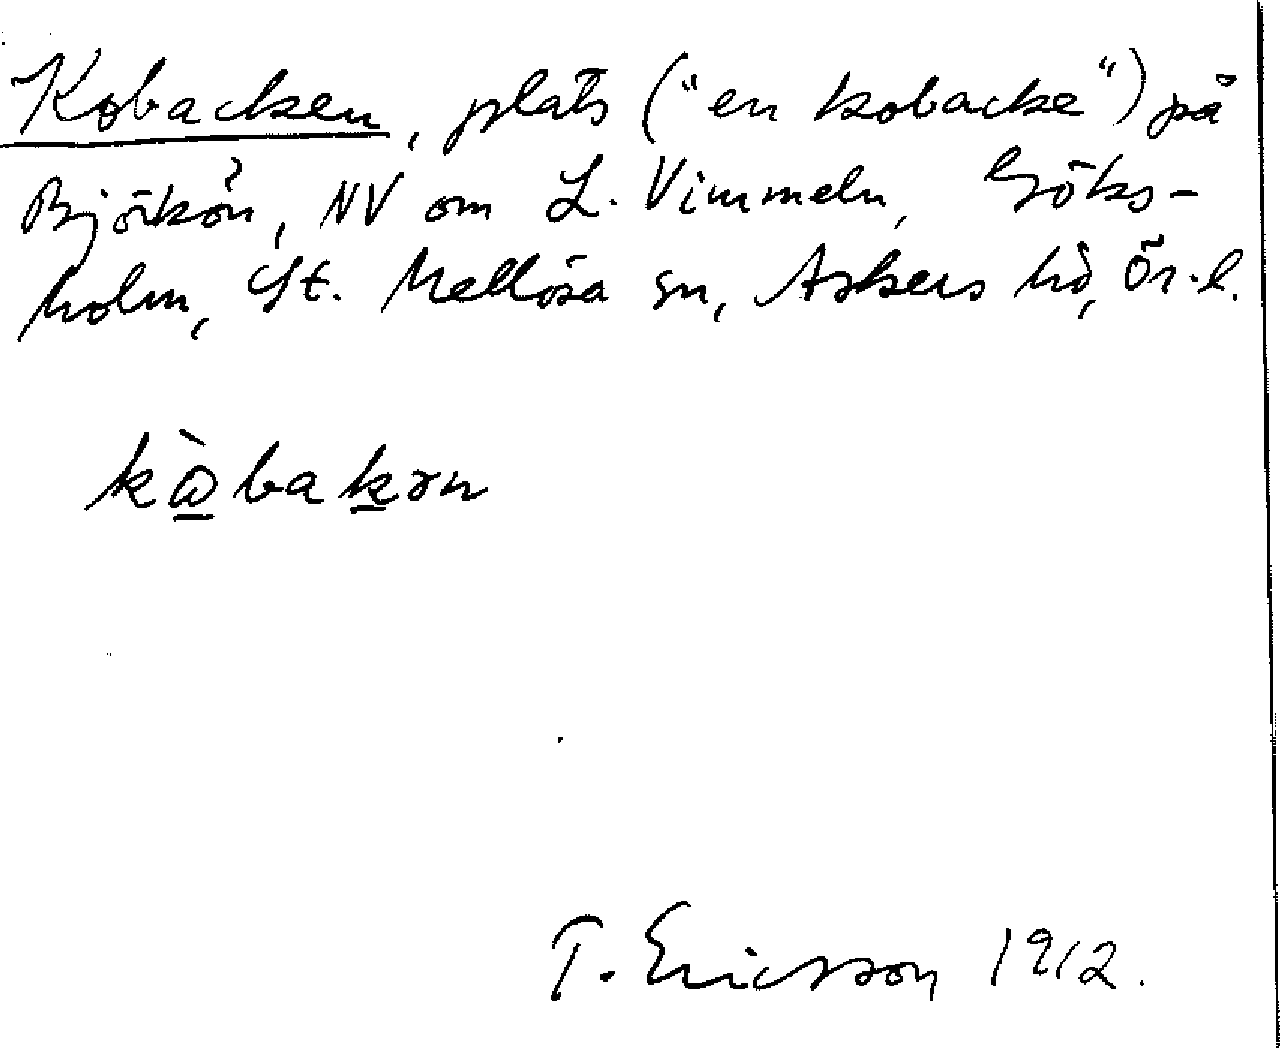 Kobacken, plats ("en kobacke") på
Björkön, NV om L. Vimmeln, Göks-
holm, St. Mellösa sn, Askers hd, Ör. l.
kὼ̱baḵən
T. Ericsson 1912.